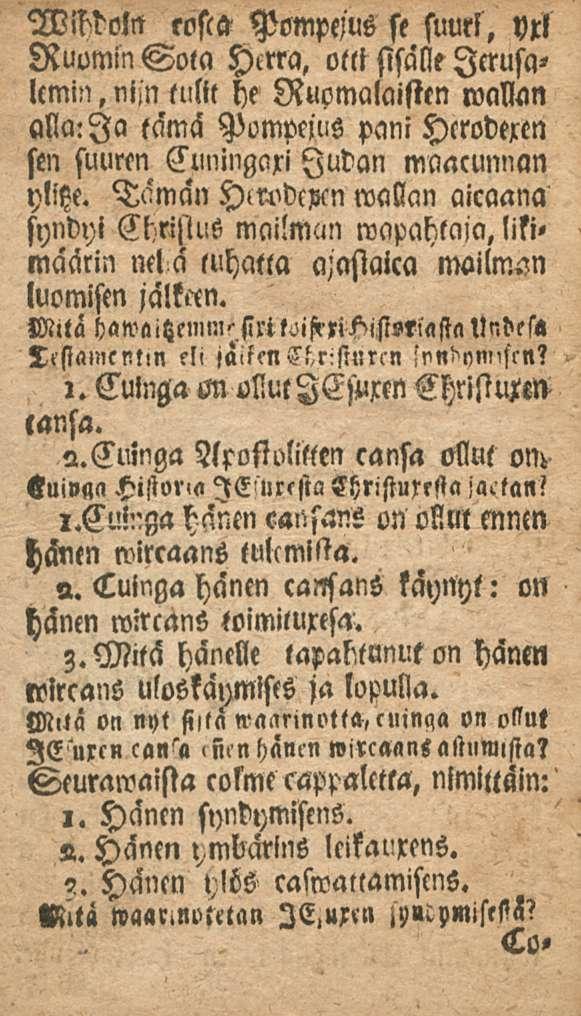 Wihdoin cosca Pompejus se suuri, yxi
Ruomin Sota Herra, otti sisälle Jerusa-
lemin, nijn tulit he Ruomalaisten wallan
alla: Ja tämä Pompejus pani Herodexen
sen suuren Cuningaxi Judan maacunnan
ylitze. Tämän Herodexen wallan aicaana
syndyi Christus mailman wapahtaja, liki-
määrin neljä tuhatta ajastaica mailman
luomisen jälkeen.
Mitä hawaitzemme sixi toisexi Historiasta Undesa
Testamentin eli jälken Christuxen syndymisen?
1. Cuinga on ollut JEsuxen Christuxen
cansa.
2. Cuinga Apostolitten cansa ollut on.
Cuinga Historia JEsuxesta Christuxesta jaetan?
1. Cuinga hänen cansans on ollut ennen
hänen wircaans tulemista.
2. Cuinga hänen cansans käynyt: on
hänen wircans toimituxesa.
3. Mitä hänelle tapahtunut on hänen
wircans uloskäymises ja lopulla.
Mitä on nyt siitä waarinotta, cuinga on ollut
JEsuxen cansa eñen hänen wircaans astumista?
Seurawaista colme cappaletta, nimittäin:
1. Hänen syndymisens.
2. Hänen ymbärins leikauxens.
3. Hänen ylös caswattamisens.
Mitä waarinotetan JEsuxen syndymisestä?
Co-